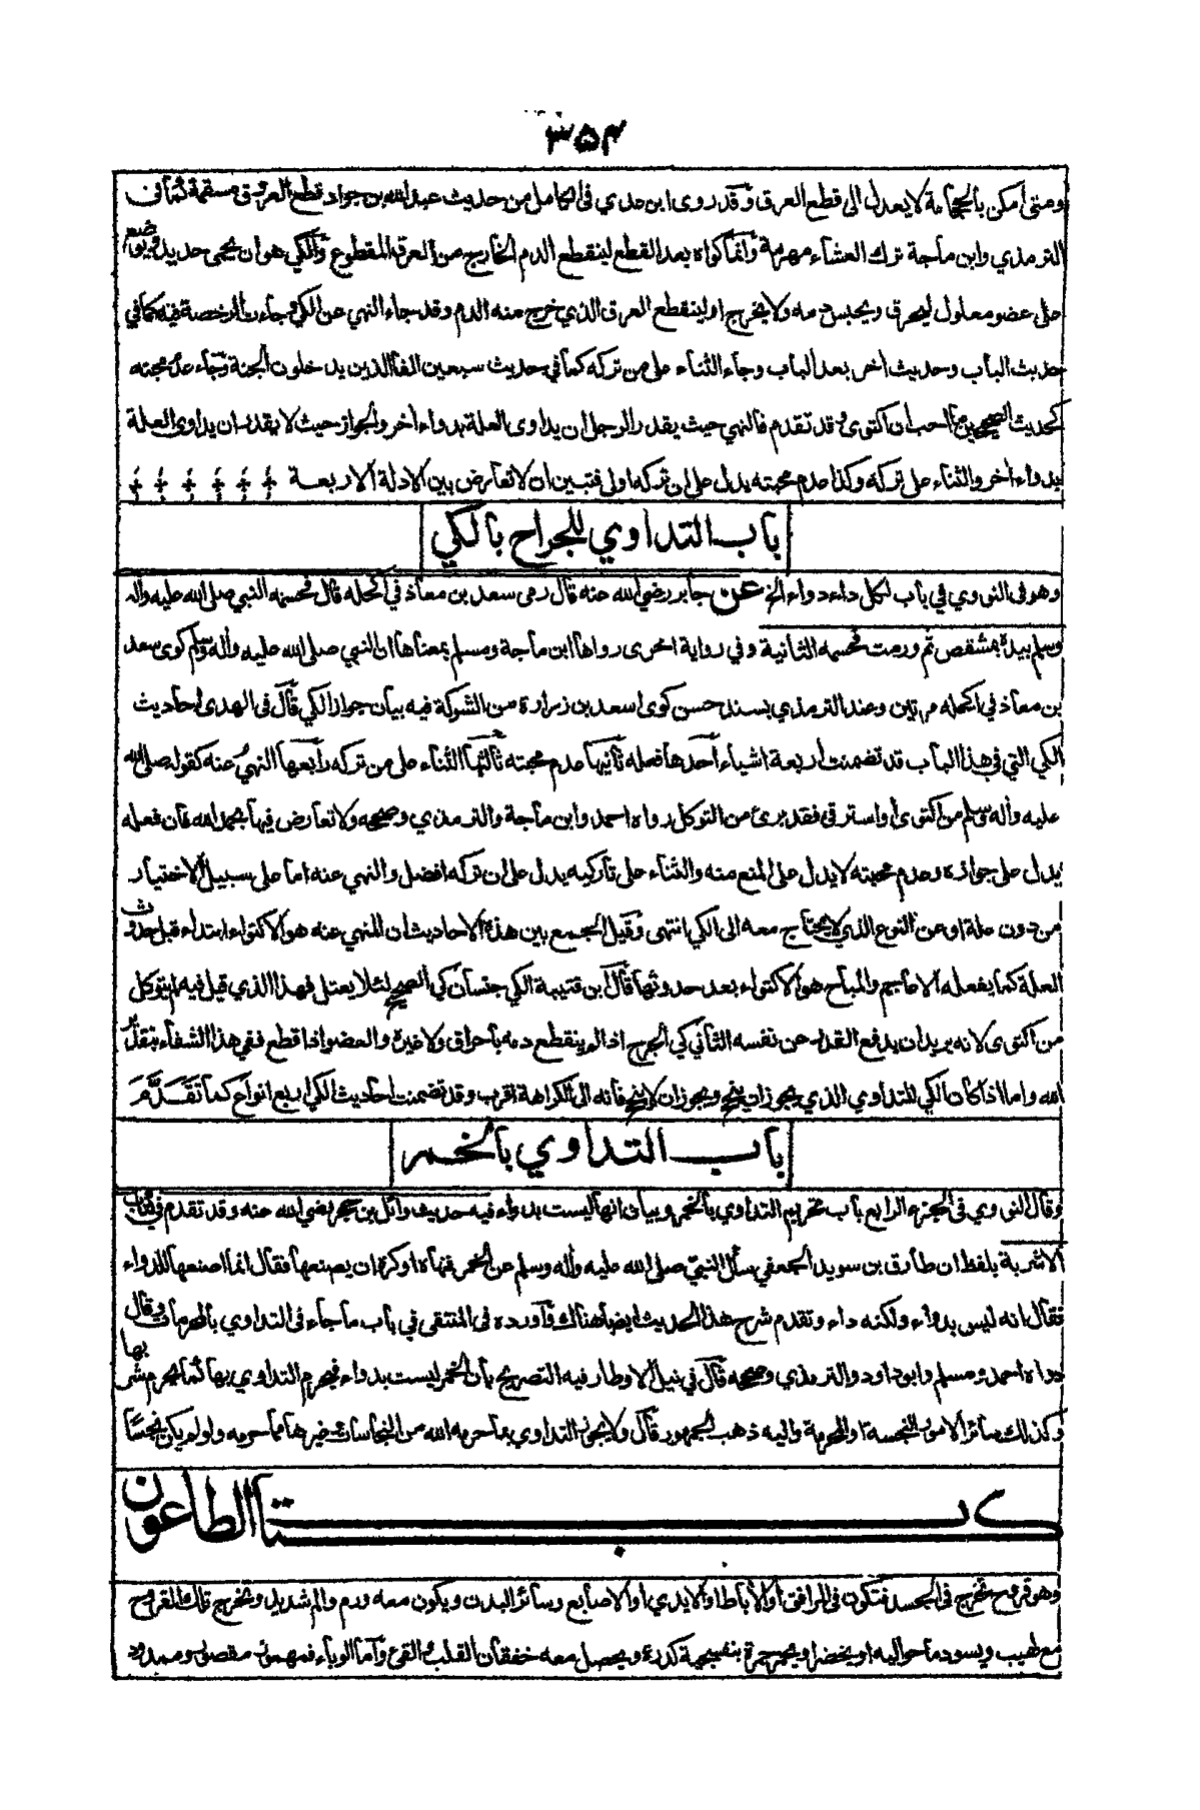 ۳۵۴
ومتى امكن بالحجامة لا يعدل الى قطع العرق وقد روى ابن عدي فى الكامل من حديث عبد الله بن جواد قطع العروق مسقمة كما فى
الترمذي وابن ماجة ترك العشاء مهرمة وانما كواه بعد القطع لينقطع الدم الخارج من العرق المقطوع والكي هو ان يحمى حديد ويوضع
على عضو معلول ليحرق ويحبس دمه ولا يخرج او لينقطع العرق الذي خرج منه الدم وقد جاء النهي عن الكي وجاءت الرخصة فيه كما في
حديث الباب وحديث اخر بعد الباب وجاء الثناء على من تركه كما في حديث سبعين الفا الذين يدخلون الجنة وجاء عدم محبته
كحديث الصحيحين ما احب ان اكتوى وقد تقدم فالنهي حيث يقدر الرجل ان يداوى العلة بدواء اخر والجواز حيث لا يقدر ان يداوى العلة
بدواء اخر والثناء على تركه وكذا عدم محبته يدل على ان تركه اولى فتبين ان لا تعارض بين الادلة الاربعة
باب التداوي للجراح بالكي
وهو فى النووي في باب لكل داء دواء الخ عن جابر رضي الله عنه قال رمى سعد بن معاذ في اكحله قال فحسمه النبي صلى الله عليه واله
وسلم بيده بمشقص ثم ورمت فحسمه الثانية وفي رواية اخرى رواها ابن ماجة ومسلم بمعناها ان النبي صلى الله عليه واله وسلم كوى سعد
بن معاذ في اكحله مرتين وعند الترمذي بسند حسن كوى اسعد بن زرارة من الشوكة فيه بيان جواز الكي قال فى الهدى احاديث
الكي التي في هذا الباب قد تضمنت اربعة اشياء احدها فعله ثانيها عدم محبته ثالثها الثناء على من تركه رابعها النهي عنه كقوله صلى الله
عليه واله وسلم من اكتوى او استرقى فقد برئ من التوكل رواه احمد وابن ماجة والترمذي وصححه ولا تعارض فيها بحمد الله فان فعله
يدل على جوازه وعدم محبته لا يدل على المنع منه والثناء على تاركيه يدل على ان تركه افضل والنهي عنه اما على سبيل الاختيار
من دون علة او عن النوع الذي لا يحتاج معه الى الكي انتهى وقيل الجمع بين هذه الاحاديث ان المنهي عنه هو الاكتواء ابتداء قبل حدوث
العلة كما يفعله الاعاجم والمباح هو الاكتواء بعد حدوثها قال ابن قتيبة الكي جنسان كي الصحيح لئلا يعتل فهذا الذي قيل فيه لم يتوكل
من اكتوى لانه يريد ان يدفع القدر عن نفسه الثاني كي الجرح اذا لم ينقطع دمه باحراق ولا غيره والعضو اذا قطع ففي هذا الشفاء بتقدير
الله واما اذا كان الكي للتداوي الذي يجوز ان ينجح ويجوز ان لا ينجح فانه الى الكراهة اقرب وقد تضمنت احاديث الكي اربع انواع كما تَقَدَّمَ
باب التداوي بالخمر
وقال النووي في الجزء الرابع باب تحريم التداوي بالخمر وبيان انها ليست بدواء فيه حديث وائل بن حجر رضي الله عنه وقد تقدم في كتاب
الاشربة بلفظ ان طارق بن سويد الجعفي سأل النبي صلى الله عليه واله وسلم عن الخمر فنهاه او كره ان يصنعها فقال انما اصنعها للدواء
فقال انه ليس بدواء ولكنه داء وتقدم شرح هذا الحديث ايضا هناك واورده فى المنتقى في باب ما جاء فى التداوي بالمحرمات وقال
رواه احمد ومسلم وابو داود والترمذي وصححه قال في نيل الاوطار فيه التصريح بان الخمر ليست بدواء فيحرم التداوي بها كما يحرم شربها
وكذلك سائر الامور النجسة او المحرمة واليه ذهب الجمهور قال ولا يجوز التداوي بما حرمه الله من النجاسات وغيرها مما حرمه ولو لم يكن نجسًا
كتاب الطاعون
وهو قروح تخرج فى الجسد فتكون فى المرافق او الاباط او الايدي او الاصابع وسائر البدن ويكون معه ورم والم شديد وتخرج تلك القروح
مع لهيب ويسود ما حواليه او يخضر او يحمر حمرة بنفسجية كدرة ويحصل معه خفقان القلب والقيء واما الوباء فمهموز مقصور وممدود